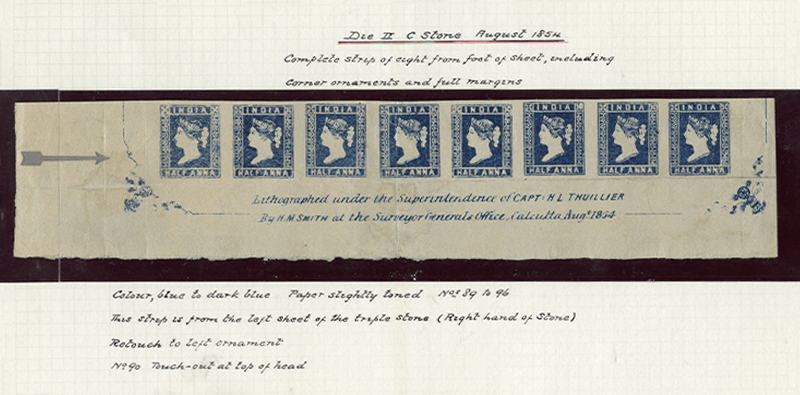 Die II C Stone August 1854
Complete strip of eight from foot of sheet, including
Corner ornaments and full margins
INDIA INDIA INDIA INDIA INDIA INDIA INDIA INDIA
HALF ANNA HALF ANNA HALF ANNA HALF ANNA HALF ANNA HALF ANNA HALF ANNA HALF ANNA
Lithographed under the Superintendence of CAPT: H L THUILLIER
By H. M SMITH at the Surveyor Generals Office, Calcutta, Augt. 1854
Colour, blue to dark blue Paper slightly toned Nos 89 to 96
This strip is from the left sheet of the triple stone (Right hand of Stone)
Retouch to left ornament
No 90 Touch-out at top of head